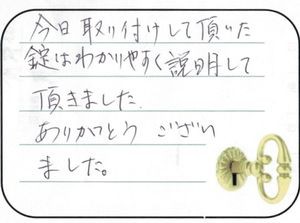 今日取り付けして頂いた
錠はわかりやすく説明して
頂きました.
ありがとう ござい
ました。